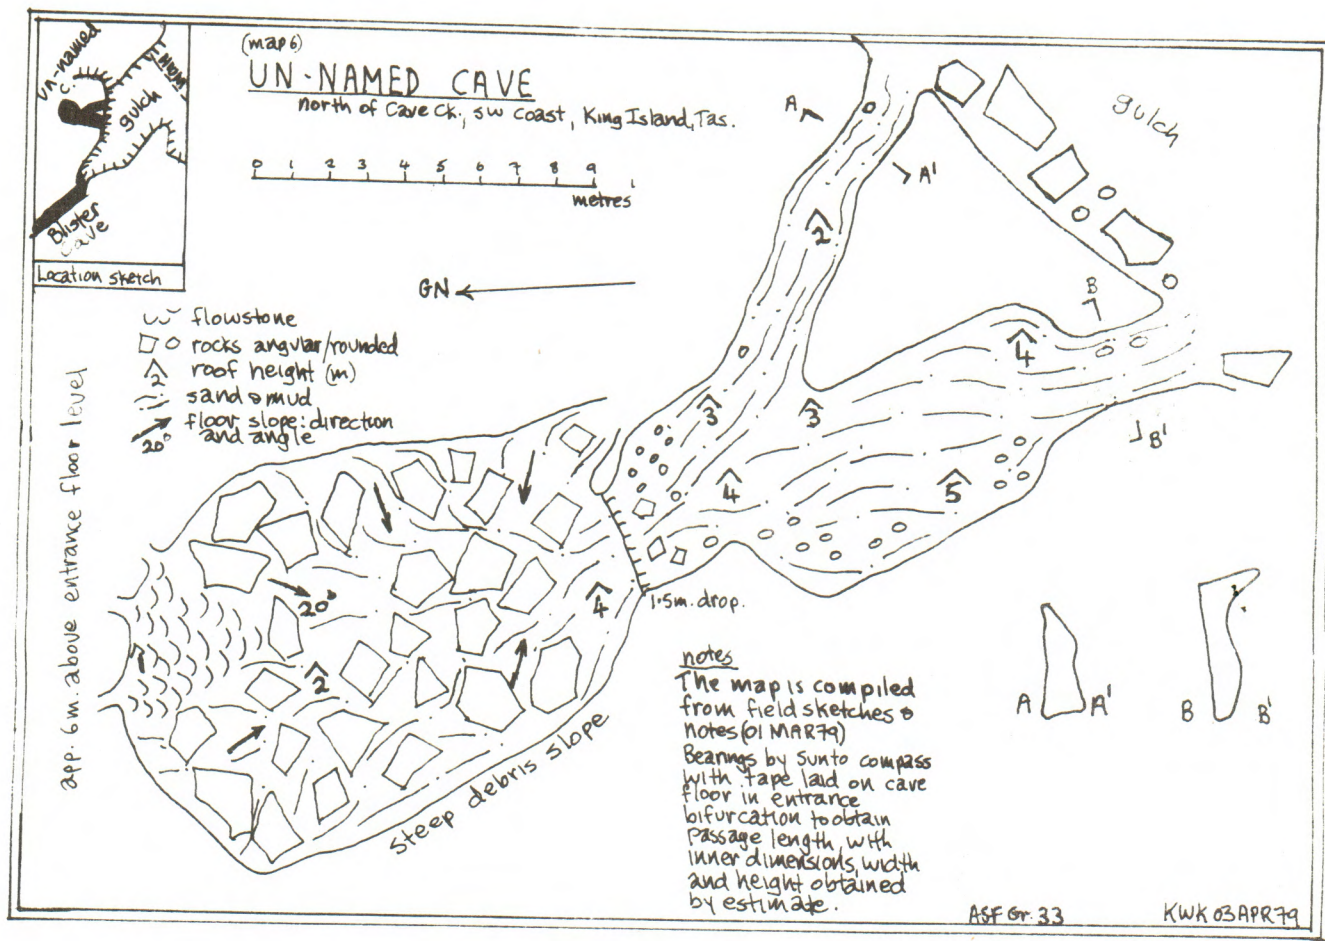 un-named
C.
HWM
gulch
Blister
Cave
Location sketch
(map 6)
UN-NAMED CAVE
north of Cave Ck., SW Coast, King Island, Tas.
0 1 2 3 4 5 6 7 8 9
metres
GN
flowstone
rocks angular/rounded
2 roof height (m)
sand & mud
floor slope: direction
20° and angle
app. 6m. above entrance floor level
gulch
A
A'
2
B
4
B'
3
3
4
5
20°
4
2
1.5m. drop.
Steep debris slope
notes
The map is compiled
from field sketches &
notes (01 MAR 79)
Bearings by Sunto compass
with tape laid on cave
floor in entrance
bifurcation to obtain
passage length, with
inner dimensions, width
and height obtained
by estimate.
A A'
B B'
ASF Gr. 33
KWK 03 APR 79